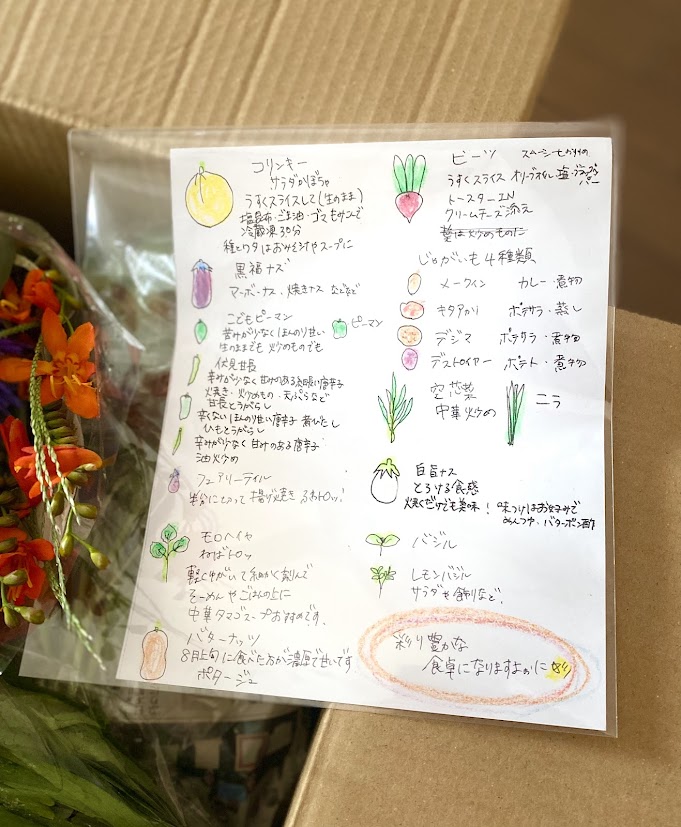 コリンキー
サラダかぼちゃ
うすくスライスして(生のまま)
塩昆布・ごま油・ゴマもみこんで
冷蔵庫30分
種とワタはおみそ汁やスープに
黒福ナス
マーボーナス・焼きナスなどなど
こどもピーマン
苦みが少なくほんのり甘い
生のままでも 炒めものでも
ピーマン
伏見甘長
辛みが少なく甘みのある細長い唐辛子
素焼き・炒めもの・天ぷらなど
甘長とうがらし
辛くないほんのり甘い唐辛子 煮びたし
ひもとうがらし
辛みが少なく甘みのある唐辛子
油炒め
フェアリーテイル
半分に切って揚げ焼き
モロヘイヤ
ねばトロッ
軽くゆがいて細かく刻んで
そーめんやごはんの上に
中華タマゴスープおすすめです。
バターナッツ
8月上旬に食べた方が濃厚で甘いです
ポタージュ
ビーツ
スムージーもおすすめ
うすくスライス オリーブオイル 塩・ブラックペパー
トースターIN
クリームチーズ添え
茎は炒めものに
じゃがいも4種類
メークイン カレー・煮物
キタアカリ ポテサラ・蒸し
デジマ ポテサラ・煮物
デストロイヤー ポテト・煮物
空芯菜
中華炒め
ニラ
白皆ナス
とろける食感
焼くだけでも美味!
味つけはお好みで
めんつゆ、バターポン酢
バジル
レモンバジル
サラダや飾りなど。
彩り豊かな
食卓になりますように